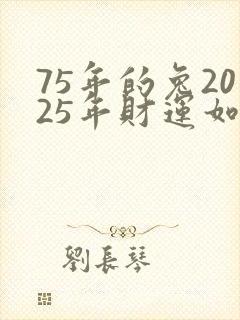 75年的兔20
25年財運如
劉長琴